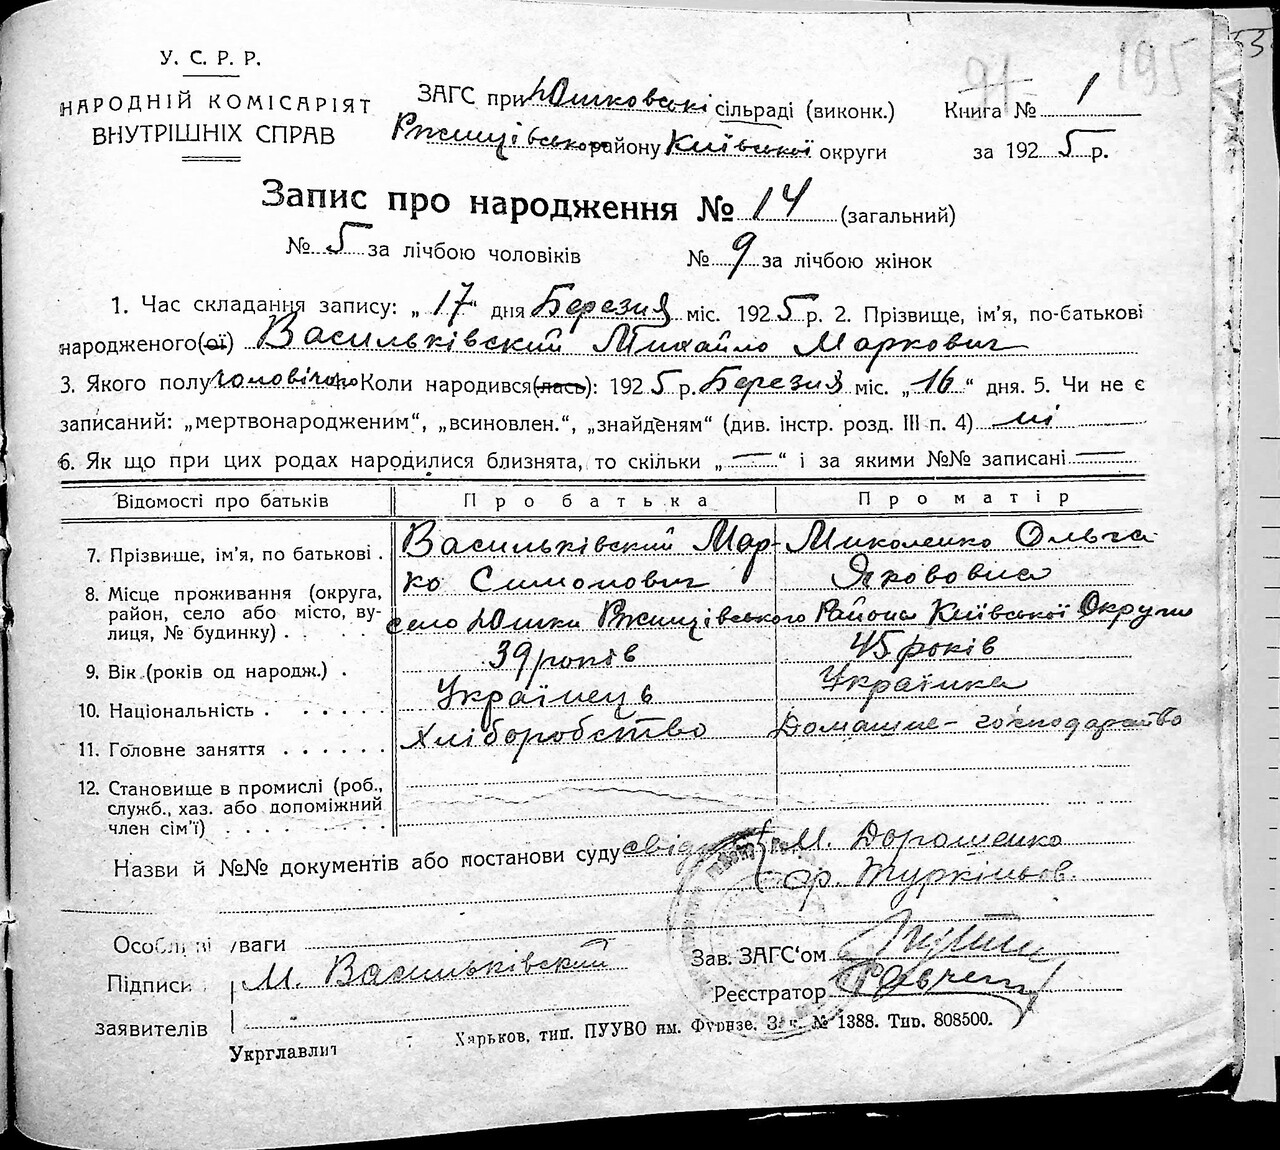 195 53
У. С. Р. Р.
НАРОДНІЙ КОМІСАРІЯТ
ВНУТРІШНІХ СПРАВ
ЗАГС при Юшковські сільраді (виконк.)
Ржищівсько району Київської округи
Книга № 1
за 1925 р.
Запис про народження № 14 (загальний)
№ 5 за лічбою чоловіків № 9 за лічбою жінок
1. Час складання запису: „17“ дня Березня міс. 1925 р. 2. Прізвище, ім’я, по-батькові
народженого(ої) Васильківский Михайло Маркович
3. Якого полу чоловічого Коли народився(лась): 1925 р. Березня міс. „16“ дня. 5. Чи не є
записаний: „мертвонародженим“, „всиновлен.“, „знайденям“ (див. інстр. розд. III п. 4) ні
6. Як що при цих родах народилися близнята, то скільки „—“ і за якими №№ записані —
Відомості про батьків Про батька Про матір
7. Прізвище, ім’я, по батькові . Васильківский Мар- Миколенко Ольга
ко Симонович Якововна
8. Місце проживання (округа,
район, село або місто, ву-
лиця, № будинку) . . . . . село Юшки Ржищівського Района Київської Округи
9. Вік (років од народж.) . 39 років 45 років
10. Національність . . . . . . Українець Українка
11. Головне заняття . . . . . . Хліборобство Домашнє-господарство
12. Становище в промислі (роб.,
служб., хаз. або допоміжний
член сім’ї) . . . . . . .
Назви й №№ документів або постанови суду М. Дорошенко
Особливі уваги
Підписи М. Васильківский
заявителів
Зав. ЗАГС‘ом
Реєстратор
Укрглавліт
Харьков, тип. ПУУВО им. Фрунзе. Зак. № 1388. Тир. 808500.